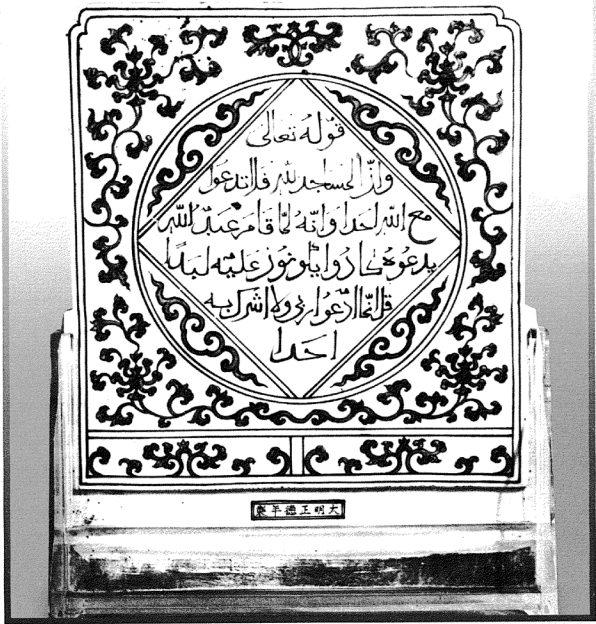 قوله تعالى
وان المساجد لله فلا تدعوا
مع الله احدا وانه لما قام عبد الله
يدعوه كادوا يكونون عليه لبدا
قل انما ادعوا ربي ولا اشرك به
احدا
大明正德年製